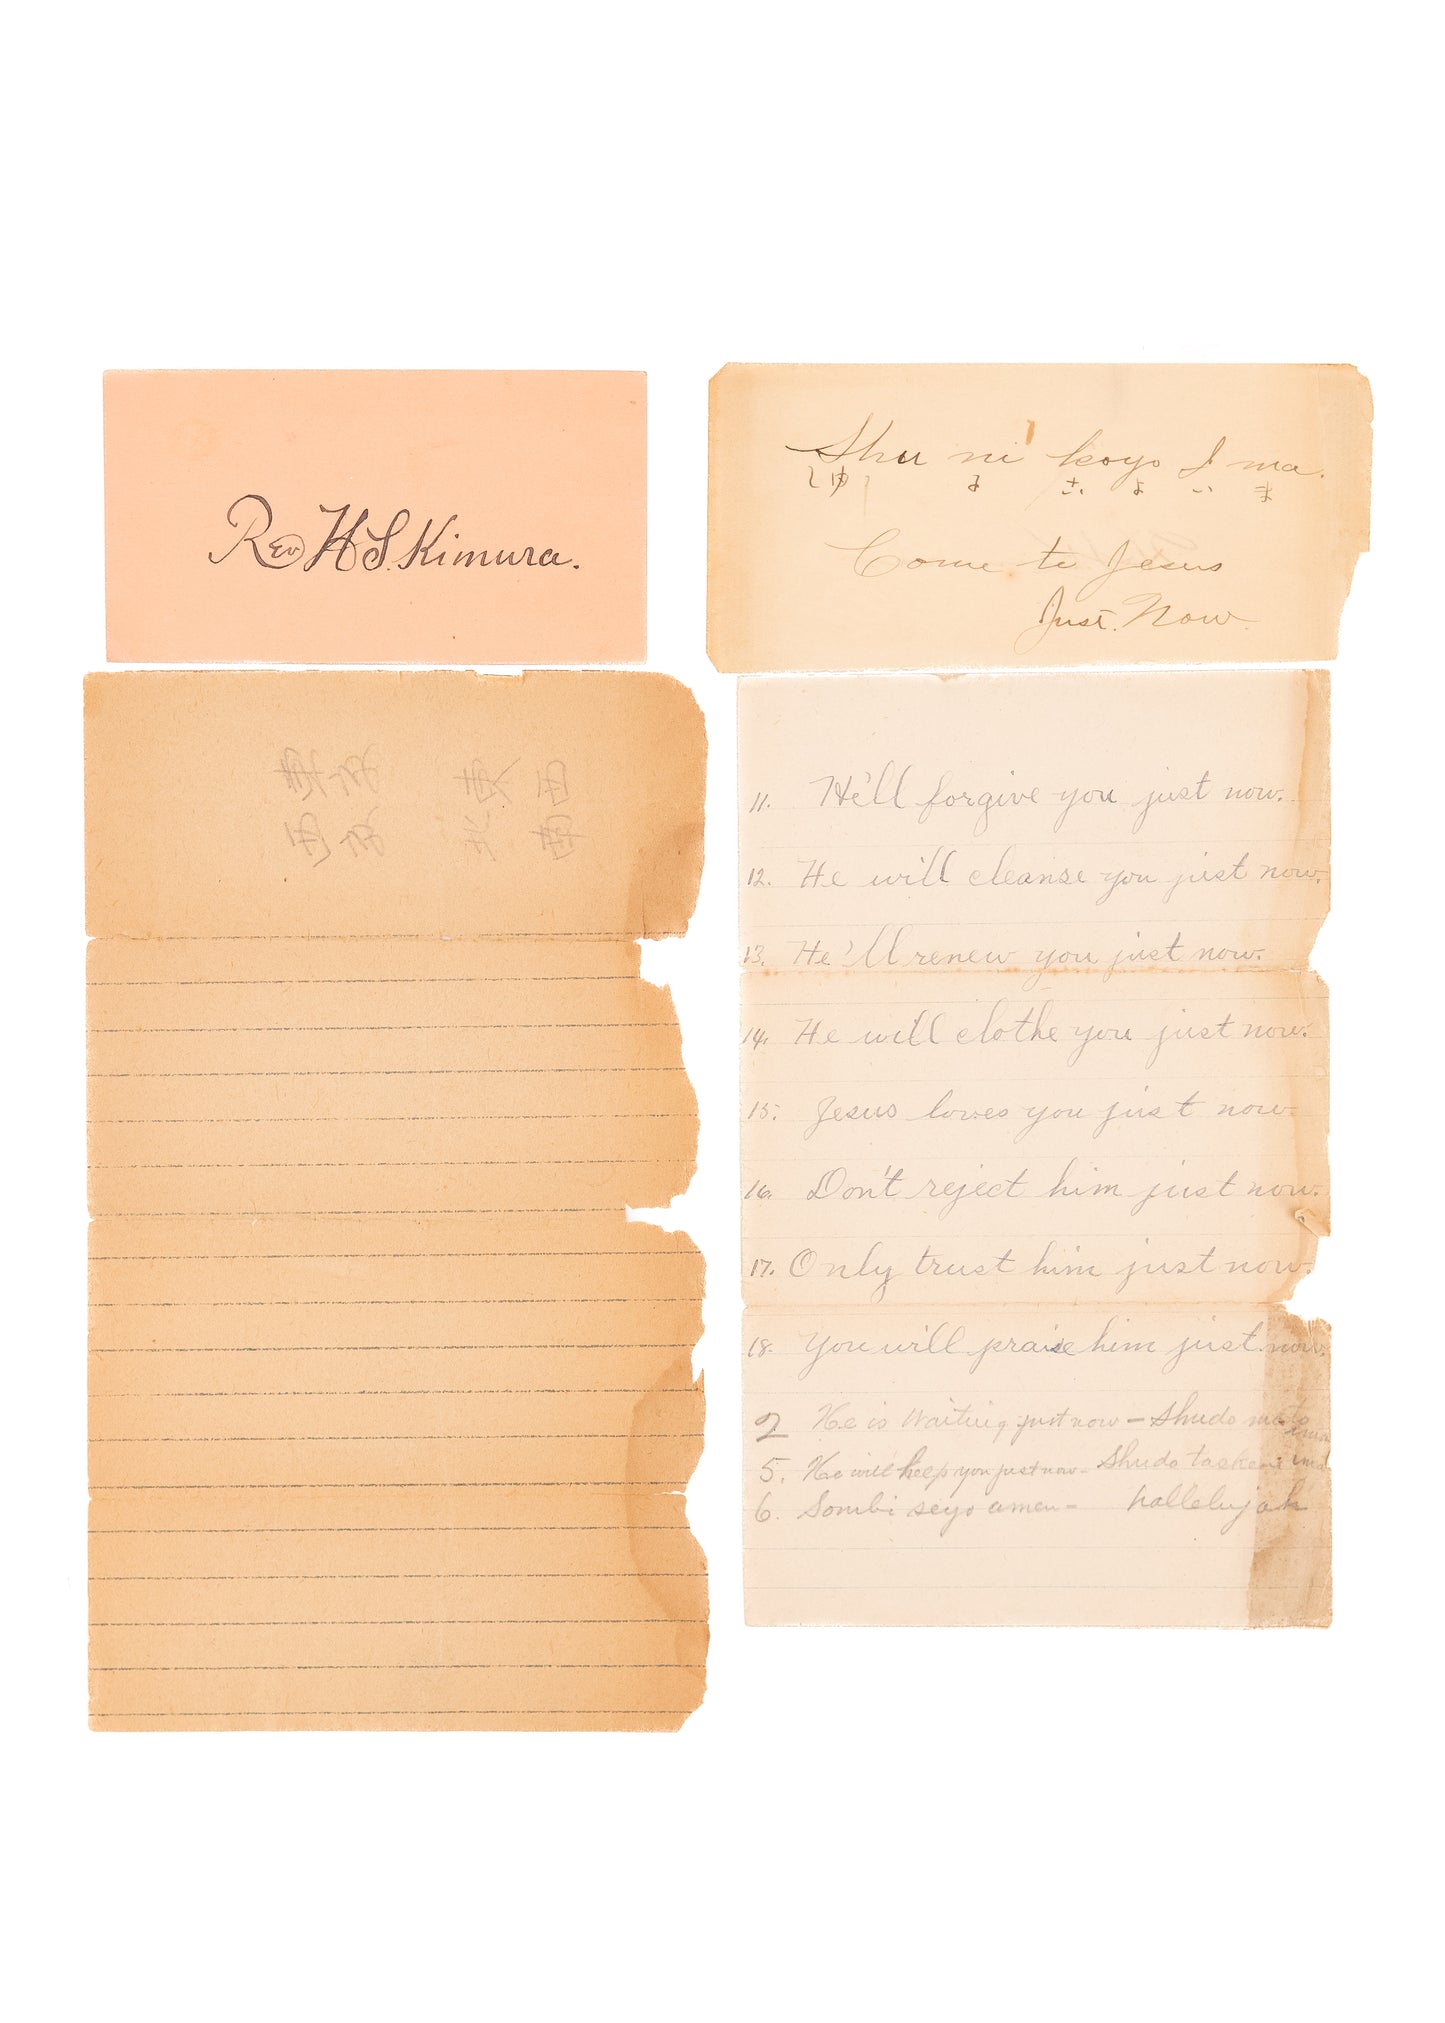 Rev H S. Kimura.
Shu ni koyo I ma.
しゆ に こ よ い ま
Come to Jesus
Just. Now.
11. He'll forgive you just now.
12. He will cleanse you just now.
13. He'll renew you just now.
14. He will clothe you just now.
15. Jesus loves you just now.
16. Don't reject him just now.
17. Only trust him just now.
18. You will praise him just now.
2 He is Waiting just now - Shudo
5. He will help you just now - Shudo ima
6. Sombi seyo amen - hallelujah